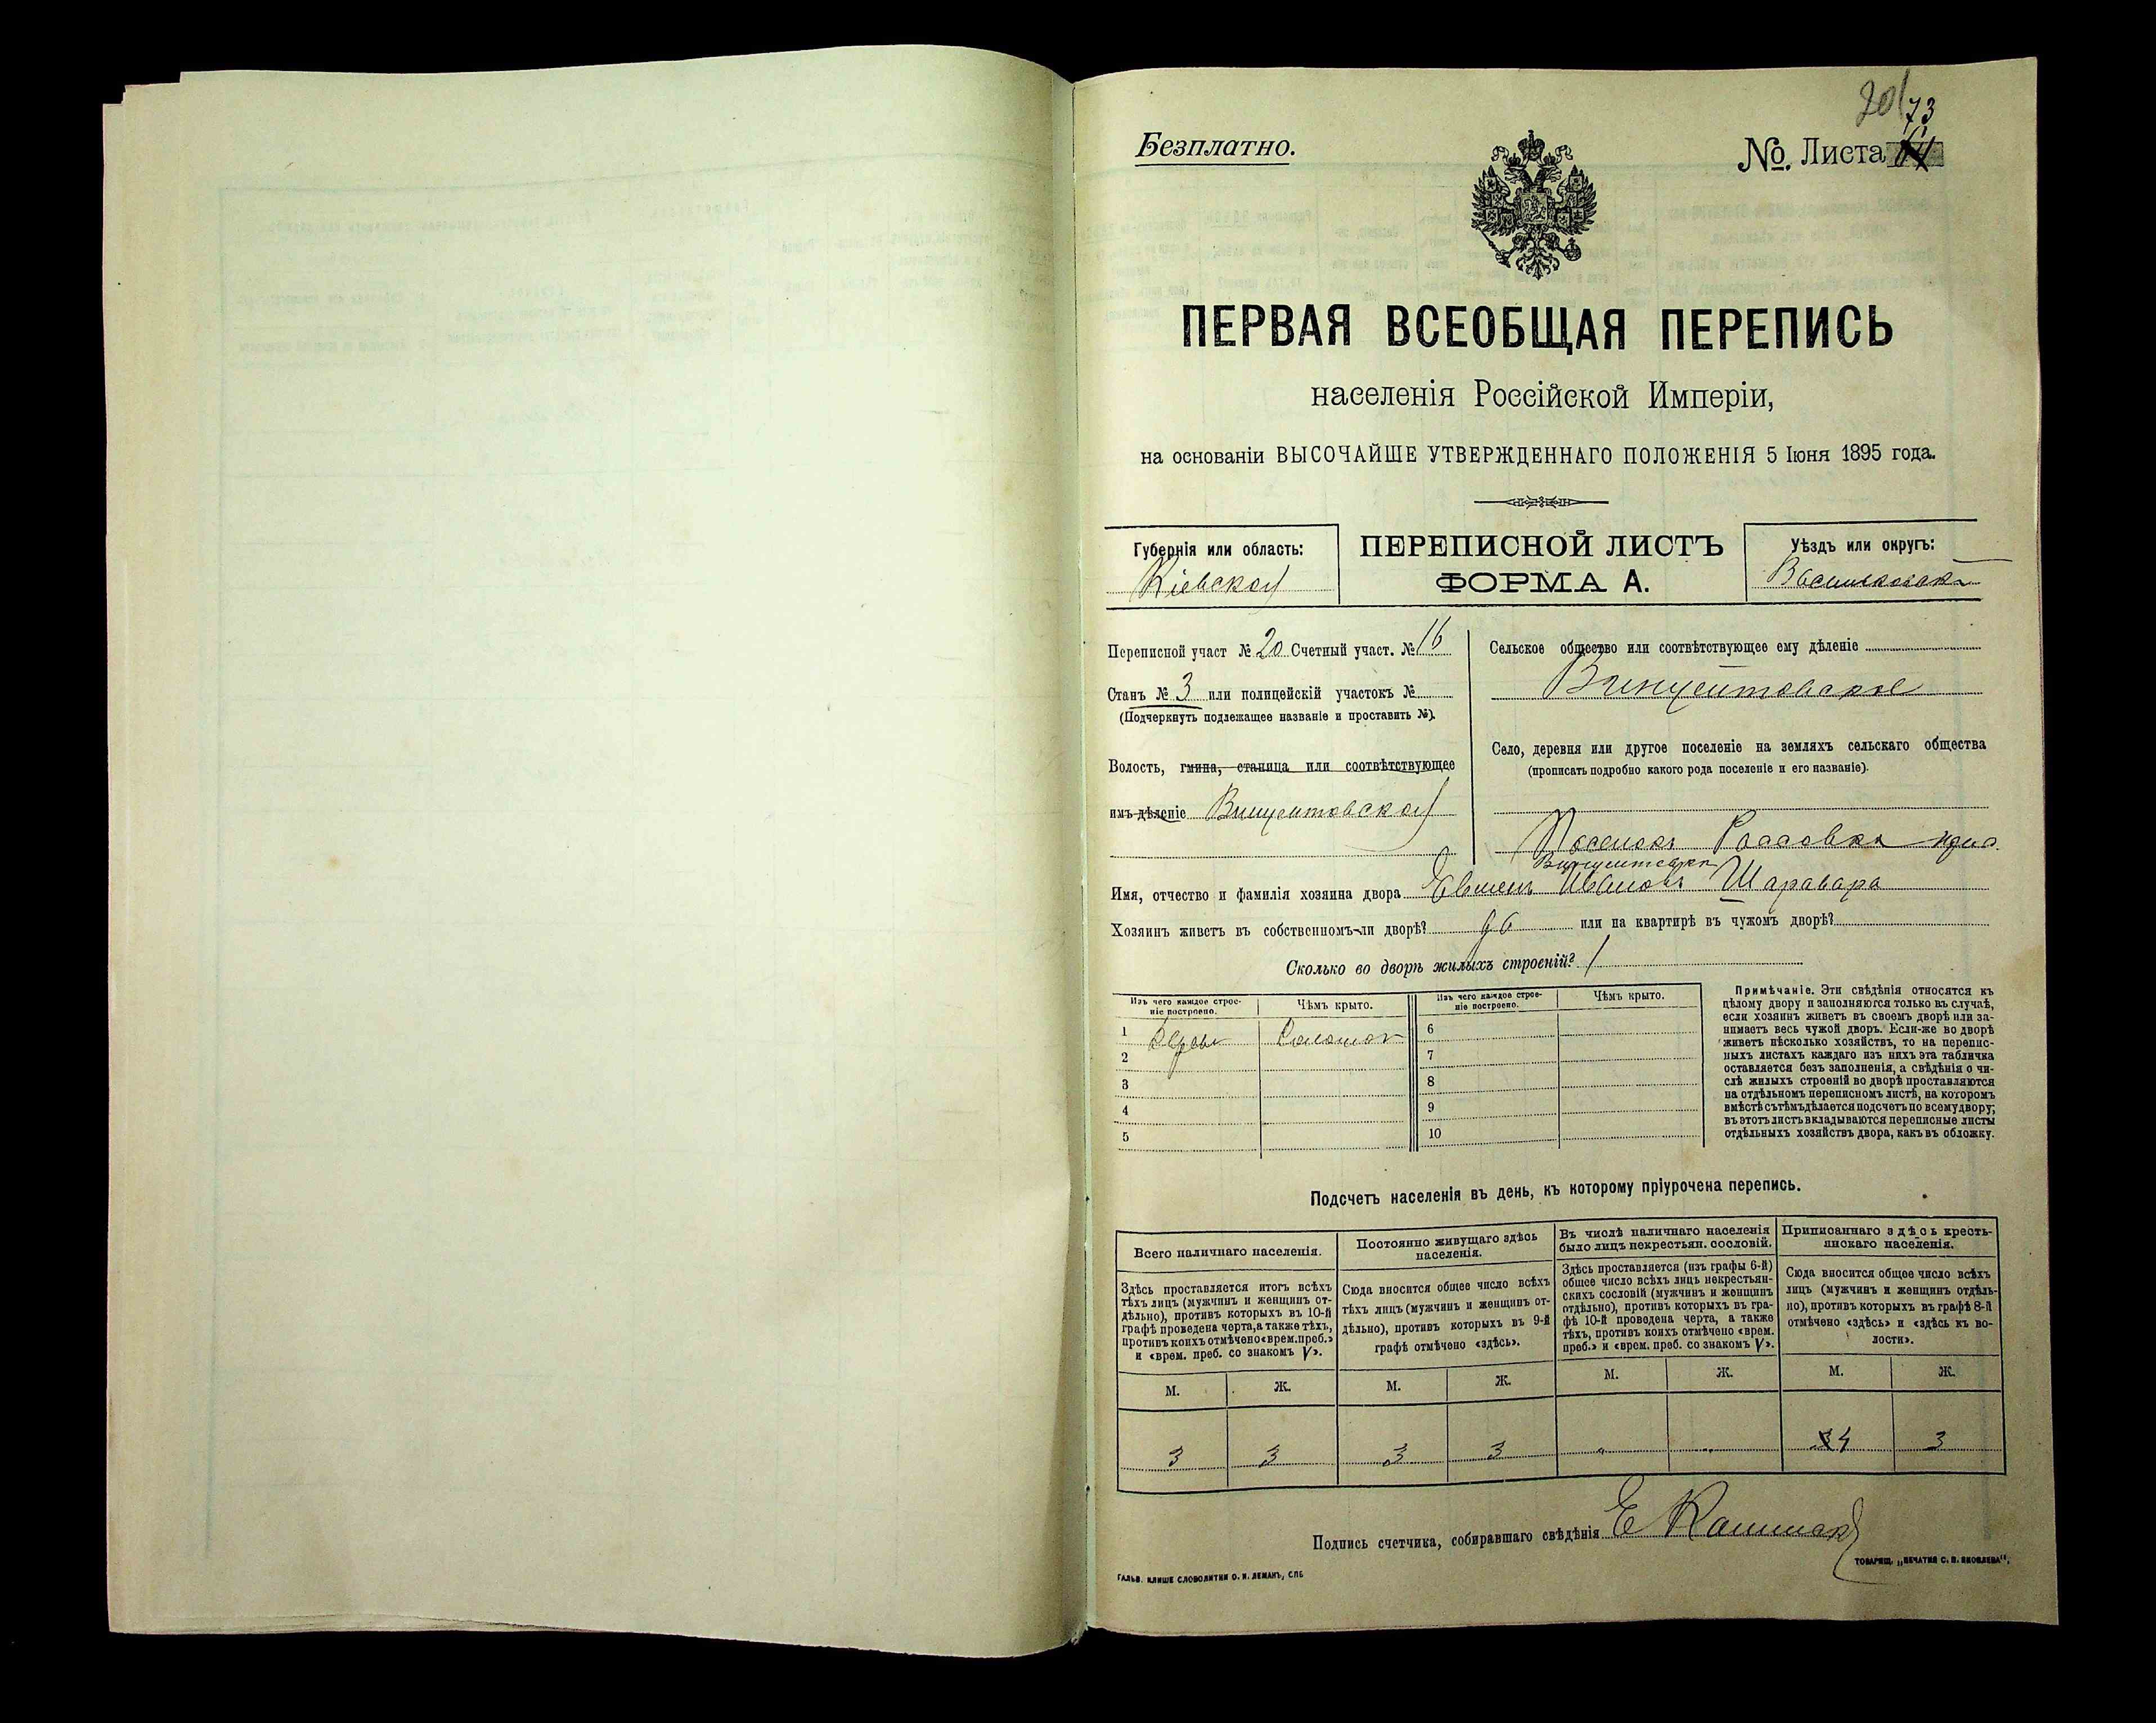 201
73
Безплатно.
№. Листа 64
ПЕРВАЯ ВСЕОБЩАЯ ПЕРЕПИСЬ
населенія Россійской Имперіи,
на основаніи ВЫСОЧАЙШЕ УТВЕРЖДЕННАГО ПОЛОЖЕНІЯ 5 Іюня 1895 года.
Губернія или область:
Кіевская
ПЕРЕПИСНОЙ ЛИСТЪ
ФОРМА А.
Уѣздъ или округъ:
Васильковскій
Переписной участ № 20 Счетный участ. № 16
Станъ № 3 или полицейскій участокъ №
(Подчеркнуть подлежащее названіе и проставить №).
Волость, гмина, станица или соотвѣтствующее
имъ дѣленіе Винцентовская
Сельское общество или соотвѣтствующее ему дѣленіе
Винцентовское
Село, деревня или другое поселеніе на земляхъ сельскаго общества
(прописать подробно какого рода поселеніе и его названіе).
Поселокъ при
Винцентовкѣ
Имя, отчество и фамилія хозяина двора Ивановъ Шаравара
Хозяинъ живетъ въ собственномъ-ли дворѣ? или на квартирѣ въ чужомъ дворѣ?
Сколько во дворѣ жилыхъ строеній? 1
Изъ чего каждое строе-
ніе построено.
Чѣмъ крыто.
Изъ чего каждое строе-
ніе построено.
Чѣмъ крыто.
1 Дерев Соломой 6
2 7
3 8
4 9
5 10
Примѣчаніе. Эти свѣдѣнія относятся къ
цѣлому двору и заполняются только въ случаѣ,
если хозяинъ живетъ въ своемъ дворѣ или за-
нимаетъ весь чужой дворъ. Если-же во дворѣ
живетъ нѣсколько хозяйствъ, то на перепис-
ныхъ листахъ каждаго изъ нихъ эта табличка
оставляется безъ заполненія, а свѣдѣнія о чи-
слѣ жилыхъ строеній во дворѣ проставляются
на отдѣльномъ переписномъ листѣ, на которомъ
вмѣстѣ съ тѣмъ дѣлается подсчетъ по всему двору;
въ этотъ листъ вкладываются переписные листы
отдѣльныхъ хозяйствъ двора, какъ въ обложку.
Подсчетъ населенія въ день, къ которому пріурочена перепись.
Всего наличнаго населенія.
Здѣсь проставляется итогъ всѣхъ
тѣхъ лицъ (мужчинъ и женщинъ от-
дѣльно), противъ которыхъ въ 10-й
графѣ проведена черта, а также тѣхъ,
противъ коихъ отмѣчено «врем. преб.»
и «врем. преб. со знакомъ V».
Постоянно живущаго здѣсь
населенія.
Сюда вносится общее число всѣхъ
тѣхъ лицъ (мужчинъ и женщинъ от-
дѣльно), противъ которыхъ въ 9-й
графѣ отмѣчено «здѣсь».
Въ числѣ наличнаго населенія
было лицъ некрестьян. сословій.
Здѣсь проставляется (изъ графы 6-й)
общее число всѣхъ лицъ некрестьян-
скихъ сословій (мужчинъ и женщинъ
отдѣльно), противъ которыхъ въ гра-
фѣ 10-й проведена черта, а также
тѣхъ, противъ коихъ отмѣчено «врем.
преб.» и «врем. преб. со знакомъ V».
Приписаннаго здѣсь кресть-
янскаго населенія.
Сюда вносится общее число всѣхъ
лицъ (мужчинъ и женщинъ отдѣль-
но), противъ которыхъ въ графѣ 8-й
отмѣчено «здѣсь» и «здѣсь къ во-
лости».
М. Ж. М. Ж. М. Ж. М. Ж.
3 3 3 3 " " 3 4 3
Подпись счетчика, собиравшаго свѣдѣнія Е
ГАЛЬВ. КЛИШЕ СЛОВОЛИТНИ О. И. ЛЕМАНЪ, СПБ
ТОВАРИЩ. „ПЕЧАТНЯ С. П. ЯКОВЛЕВА“,